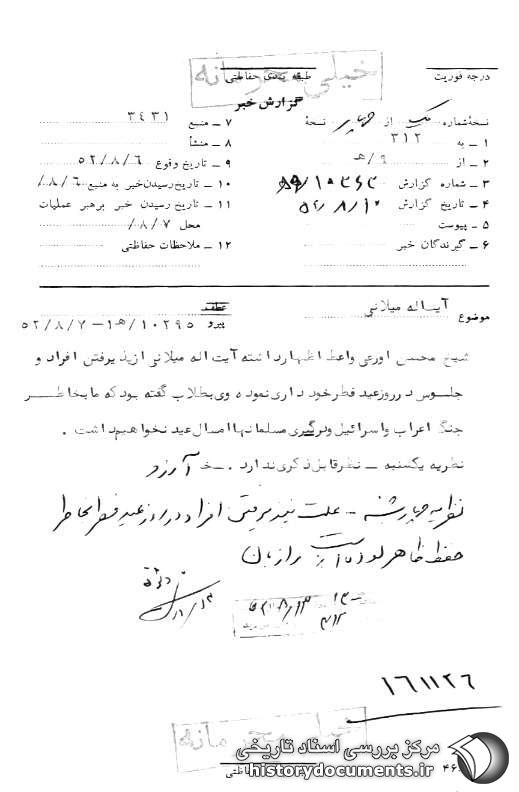 خیلی محرمانه
درجه فوریت
طبقه بندی حفاظتی
گزارش خبر
نسخه‌شماره یک از چهار نسخهٔ
۱ – به ۳۱۲
۲ – از ۹/هـ
۳ – شماره گزارش
۴ – تاریخ گزارش ۵۲/۸/۱۰
۵ – پیوست
۶ – گیرندگان خبر
۷ – منبع ۳۴۳۱
۸ – منشأ
۹ – تاریخ وقوع ۵۲/۸/۶
۱۰ – تاریخ رسیدن خبر به منبع ۸/۶/
۱۱ – تاریخ رسیدن خبر برهبر عملیات
محل ۸/۷/
۱۲ – ملاحظات حفاظتی
موضوع آیت‌اله میلانی
عطف
پیرو ۱۰۲۹۵/۹هـ۱–۵۲/۸/۷
شیخ محسن اورعی واعظ اظهارداشته آیت اله میلانی ازپذیرفتن افراد و
جلوس درروزعید فطرخودداری نموده وی بطلاب گفته بود که ما بخاطر
جنگ اعراب واسرائیل ودرگیری مسلمانها امسال عید نخواهیم داشت .
نظریه یکشنبه – نظرقابل ذکری ندارد . – آرزو
نظریه چهارشنبه – علت نپذیرفتن افراد در روز عید فطر بخاطر
حفظ ظاهر بوده است
۵۲/۸/۱۳
۳۱۲
۱۶۱۱۲۶
خیلی محرمانه
مرکز بررسی اسناد تاریخی
historydocuments.ir